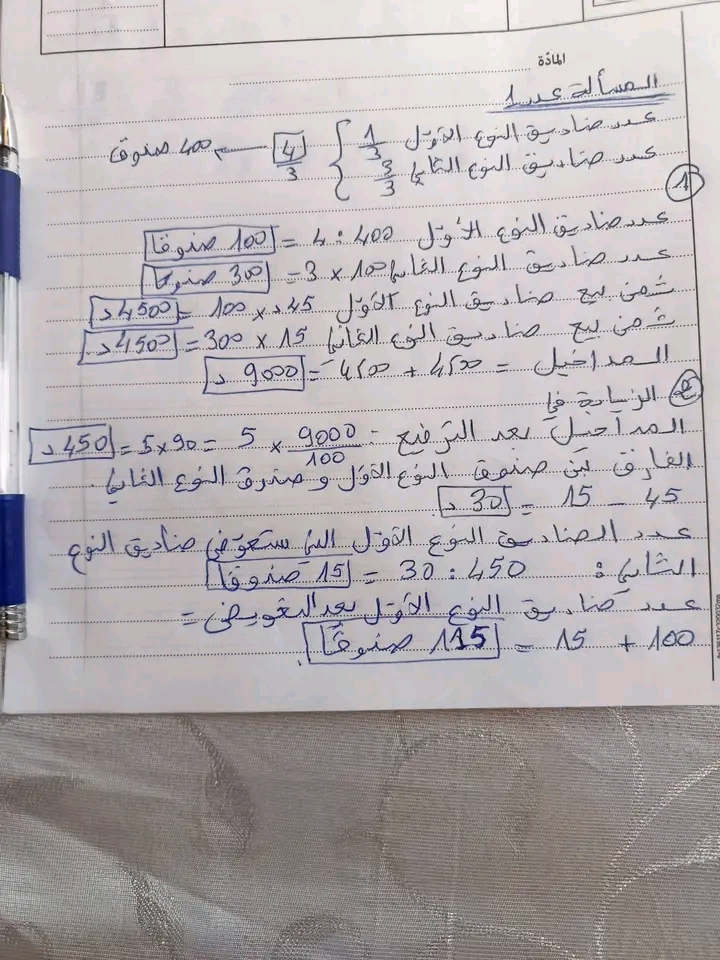 المادة
المسألة عدد 1
عدد صناديق النوع الأول 1/3
عدد صناديق النوع الثاني 3/3
4/3 ← 400 صندوق
1
عدد صناديق النوع الأول 400 : 4 = 100 صندوقا
عدد صناديق النوع الثاني 100 × 3 = 300 صندوقا
ثمن بيع صناديق النوع الأول 45د × 100 = 4500 د
ثمن بيع صناديق النوع الثاني 15 × 300 = 4500 د
المداخيل = 4500 + 4500 = 9000 د
2 الزيادة في
المداخيل بعد الترفيع : 9000/100 × 5 = 90×5 = 450 د
الفارق بين صندوق النوع الأول و صندوق النوع الثاني .
45 – 15 = 30 د
عدد الصناديق النوع الأول التي ستعوض صناديق النوع
الثاني : 450 : 30 = 15 صندوقا
عدد صناديق النوع الأول بعد التعويض =
100 + 15 = 115 صندوقا